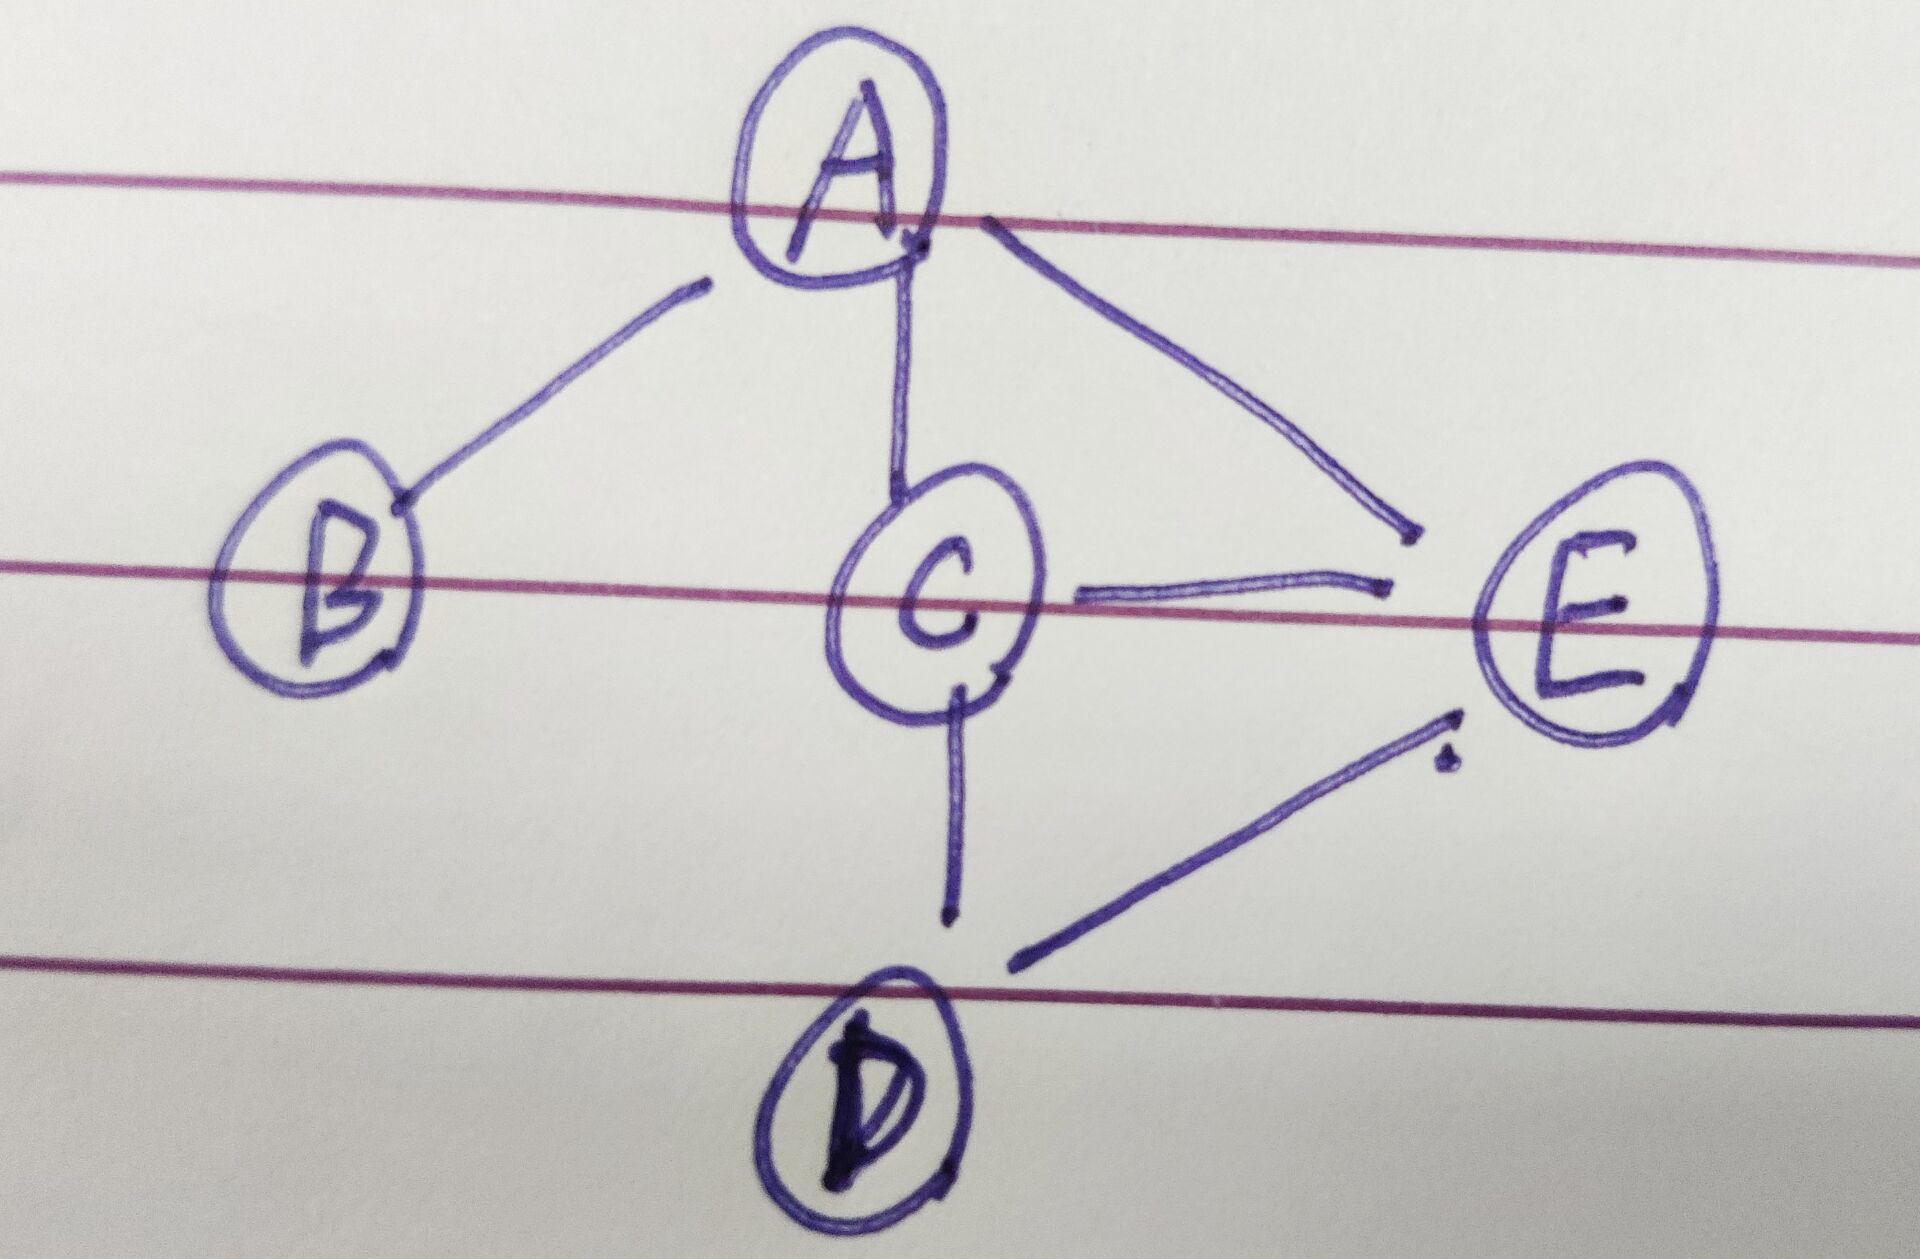 A
B C E
D